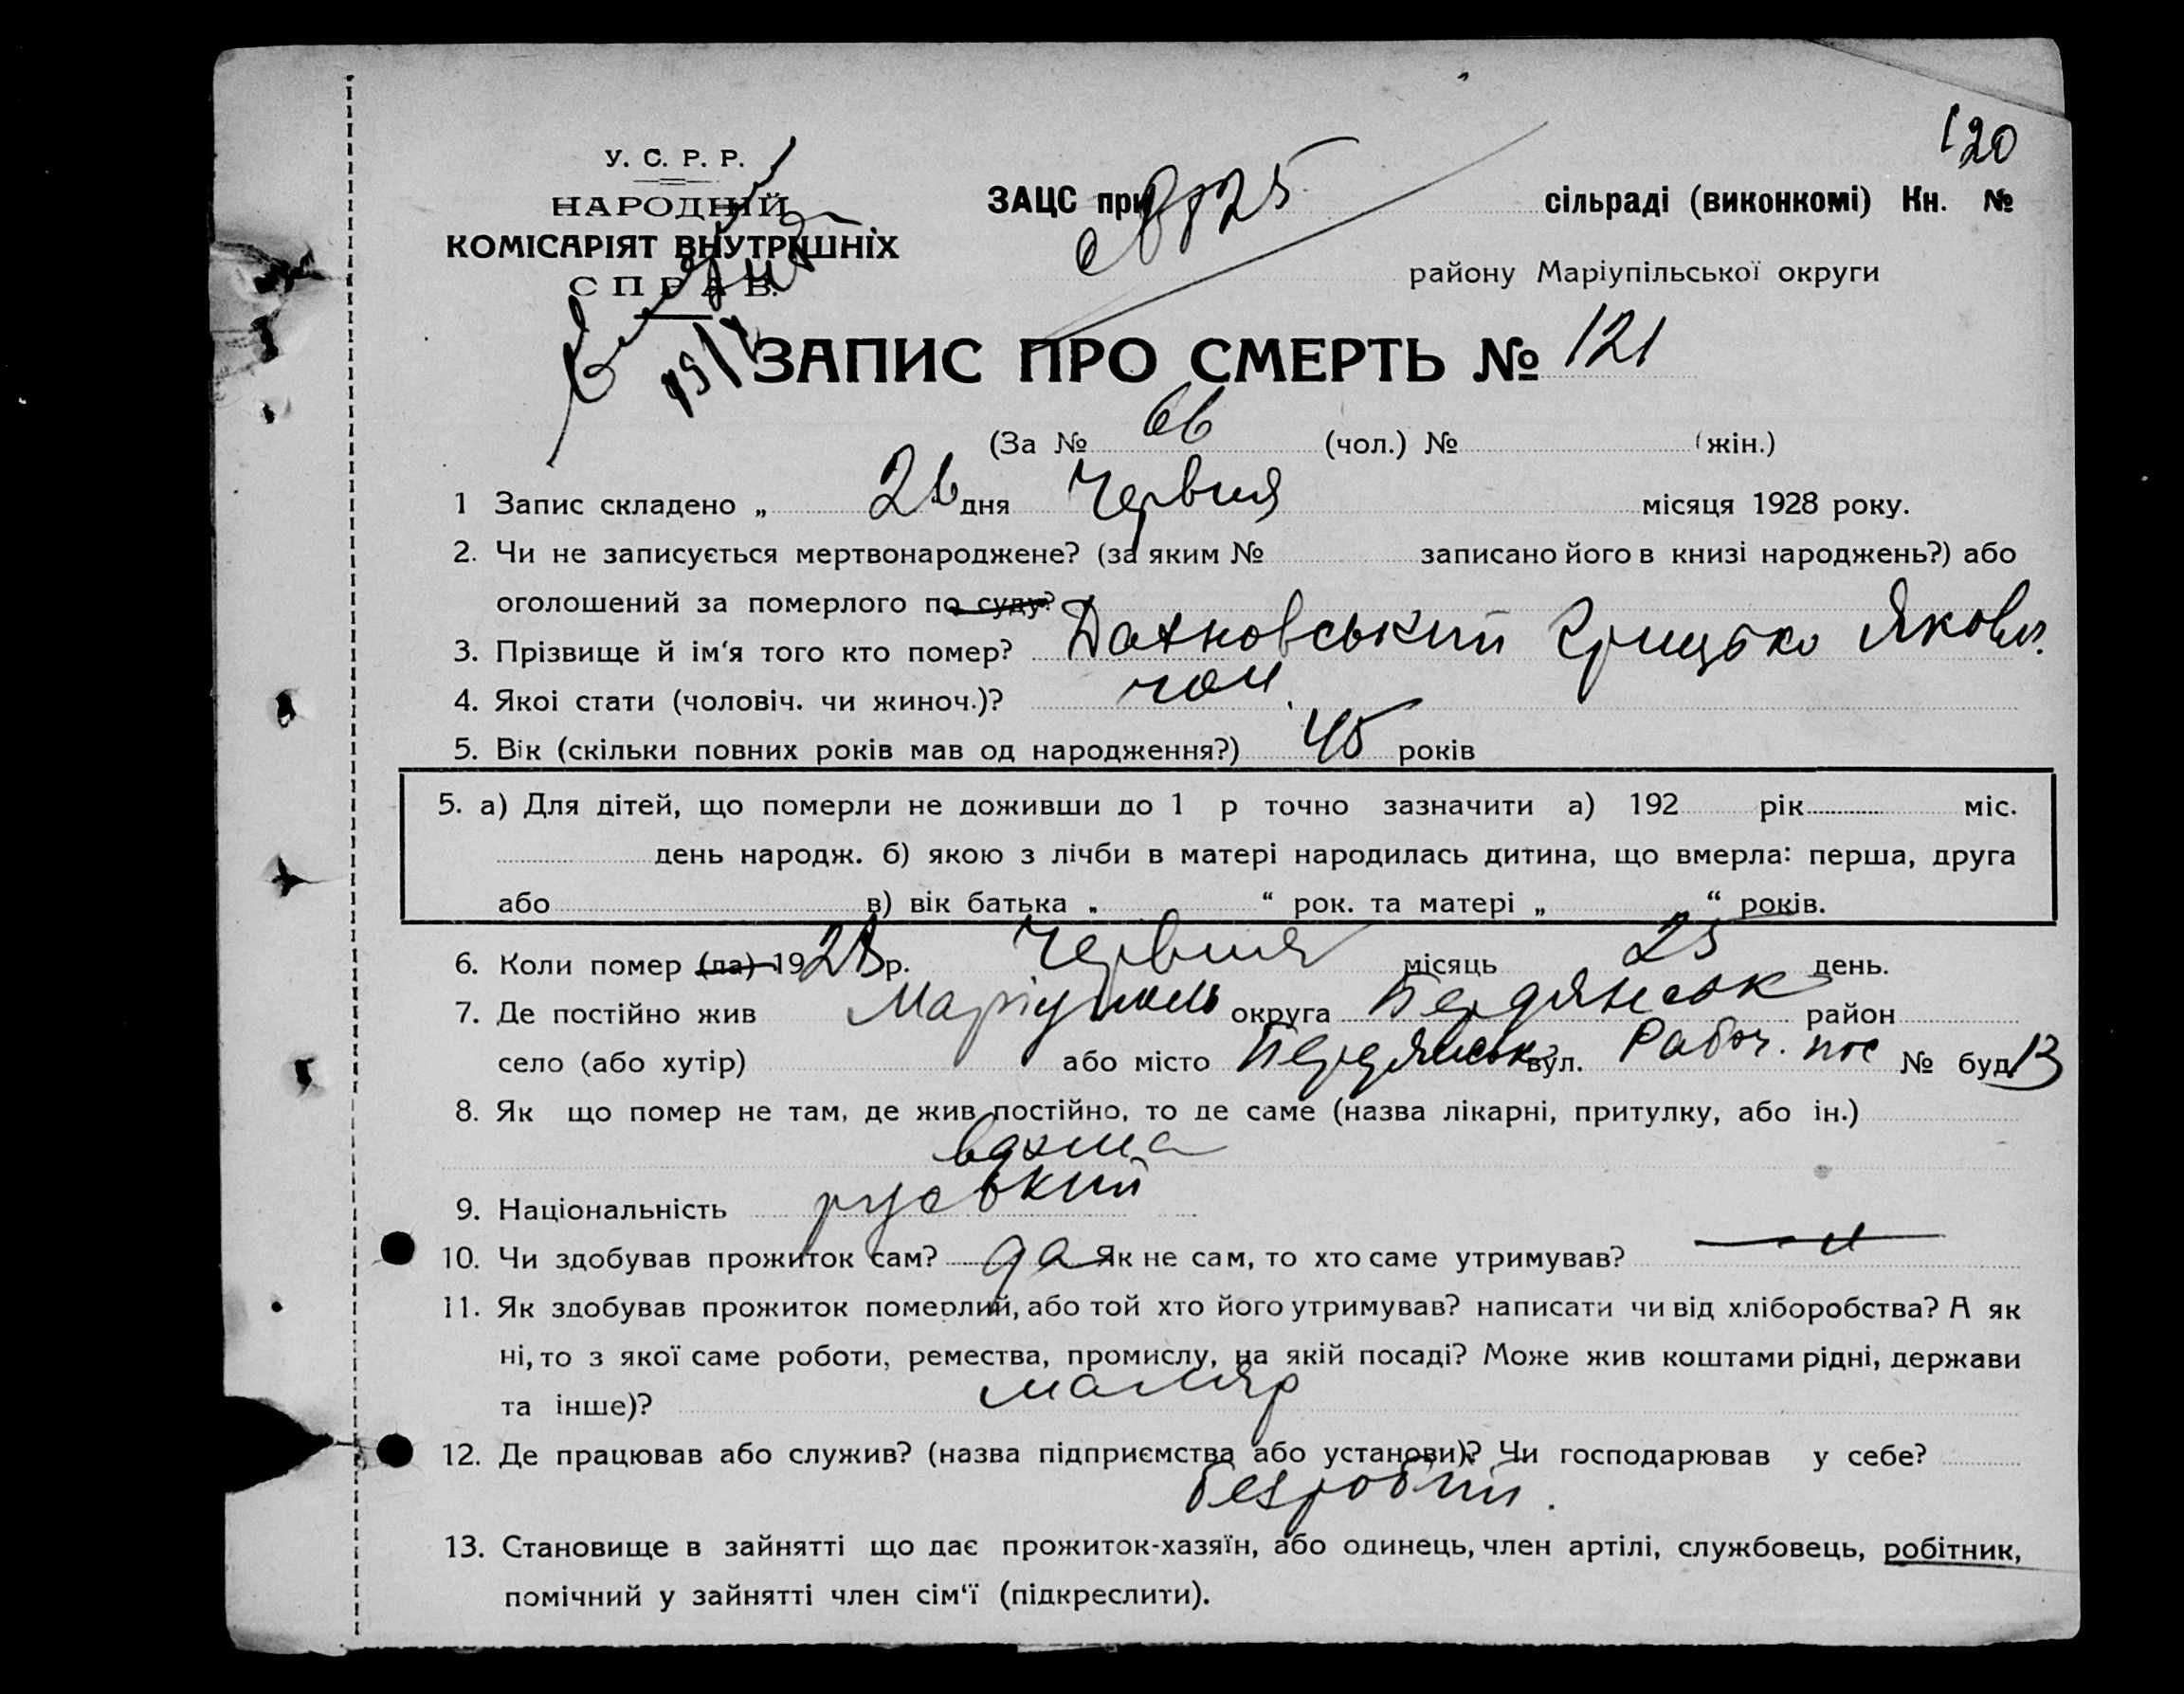 120
У. С. Р. Р.
НАРОДНІЙ
КОМІСАРІЯТ ВНУТРІШНІХ
СПРАВ.
ЗАЦС при сільраді (виконкомі) Кн. №
району Маріупільської округи
ЗАПИС ПРО СМЕРТЬ № 121
(За № 66 (чол.) № (жін.)
1 Запис складено „ 26 дня Червня місяця 1928 року.
2. Чи не записується мертвонароджене? (за яким № записано його в книзі народжень?) або
оголошений за померлого по суду?
3. Прізвище й ім'я того кто помер? Дахновський Грицько Яков.
4. Якоі стати (чоловіч. чи жиноч.)? чол.
5. Вік (скільки повних років мав од народження?) 45 років
5. а) Для дітей, що померли не доживши до 1 р точно зазначити а) 192 рік міс.
день народж. б) якою з лічби в матері народилась дитина, що вмерла: перша, друга
або в) вік батька „ “ рок. та матері „ “ років.
6. Коли помер (ла) 1928 р. Червня місяць 25 день.
7. Де постійно жив Маріупіль округа Бердянськ район
село (або хутір) або місто Бердянськ вул. Рабоч. пос № буд 13
8. Як що помер не там, де жив постійно, то де саме (назва лікарні, притулку, або ін.)
вдома
9. Національність руський
10. Чи здобував прожиток сам? да Як не сам, то хто саме утримував?
11. Як здобував прожиток померлий, або той хто його утримував? написати чи від хліборобства? А як
ні, то з якої саме роботи, ремества, промислу, на якій посаді? Може жив коштами рідні, держави
та інше)? маляр
12. Де працював або служив? (назва підприємства або установи)? Чи господарював у себе?
безробітн.
13. Становище в зайнятті що дає прожиток-хазяїн, або одинець, член артілі, службовець, робітник,
помічний у зайнятті член сім'ї (підкреслити).